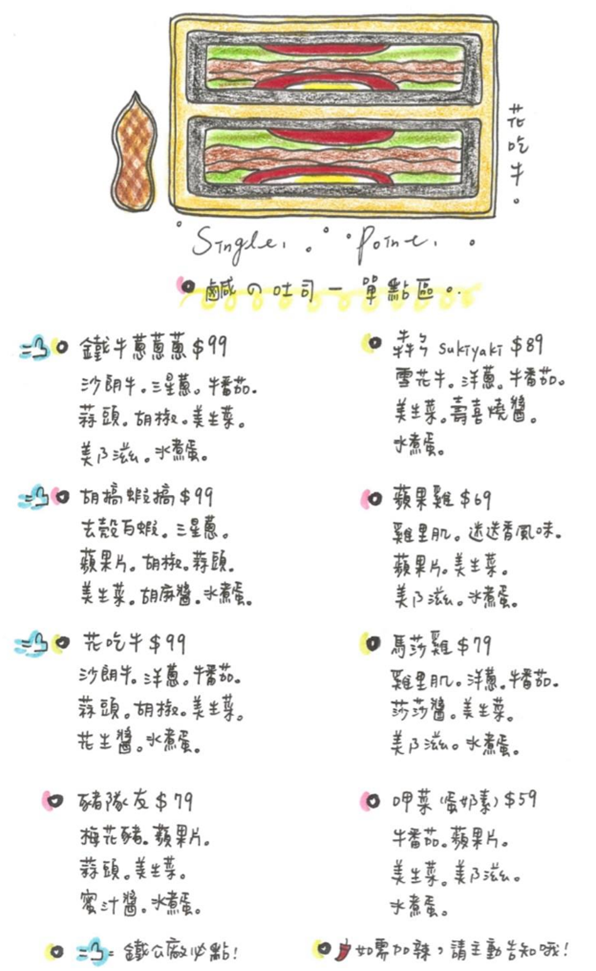 花吃牛。
Single. Point.
鹹の吐司－單點區。
鐵牛蔥蔥蔥$99
沙朗牛。三星蔥。牛番茄。
蒜頭。胡椒。美生菜。
美乃滋。水煮蛋。
胡搞蝦搞$99
去殼白蝦。三星蔥。
蘋果片。胡椒。蒜頭。
美生菜。胡麻醬。水煮蛋。
花吃牛$99
沙朗牛。洋蔥。牛番茄。
蒜頭。胡椒。美生菜。
花生醬。水煮蛋。
豬隊友$79
梅花豬。蘋果片。
蒜頭。美生菜。
蜜汁醬。水煮蛋。
sukiyaki $89
雪花牛。洋蔥。牛番茄。
美生菜。壽喜燒醬。
水煮蛋。
蘋果雞$69
雞里肌。迷迭香風味。
蘋果片。美生菜。
美乃滋。水煮蛋。
馬莎雞$79
雞里肌。洋蔥。牛番茄。
莎莎醬。美生菜。
美乃滋。水煮蛋。
呷菜(蛋奶素)$59
牛番茄。蘋果片。
美生菜。美乃滋。
水煮蛋。
鐵公廠必點!
如需加辣，請主動告知哦!